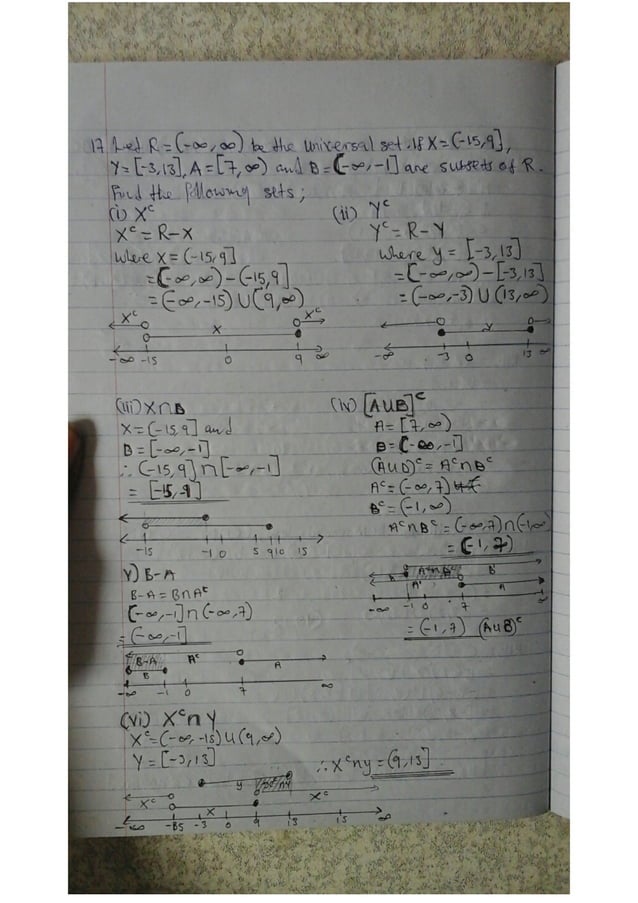 17. Let R = (-∞, ∞) be the universal set. If X = (-15, 9],
Y = [-3, 13], A = [7, ∞) and B = (-∞, -1] are subsets of R.
Find the following sets;
(i) Xᶜ
Xᶜ = R - X
where X = (-15, 9]
= (-∞, ∞) - (-15, 9]
= (-∞, -15) ∪ (9, ∞)
Xᶜ X Xᶜ
-∞ -15 0 9 ∞
(ii) Yᶜ
Yᶜ = R - Y
where y = [-3, 13]
= (-∞, ∞) - [-3, 13]
= (-∞, -3) ∪ (13, ∞)
Y
-∞ -3 0 13 ∞
(iii) X∩B
X = (-15, 9] and
B = [-∞, -1]
∴ (-15, 9] ∩ [-∞, -1]
-15 -1 0 5 9 10 15
(iv) [A∪B]ᶜ
A = [7, ∞)
B = (-∞, -1]
(A∪B)ᶜ = Aᶜ∩Bᶜ
Aᶜ = (-∞, 7)
Bᶜ = (-1, ∞)
Aᶜ∩Bᶜ = (-∞, 7) ∩ (-1, ∞
= (-1, 7)
Aᶜ∩Bᶜ B
A
-∞ -1 0 7
= (-1, 7) (A∪B)ᶜ
V) B-A
B-A = B∩Aᶜ
(-∞, -1] ∩ (-∞, 7)
= (-∞, -1]
B-A Aᶜ A
B
-∞ -1 0 7 ∞
(vi) Xᶜ∩Y
Xᶜ = (-∞, -15) ∪ (9, ∞)
Y = [-3, 13]
∴ Xᶜ∩y = (9, 13]
y
Xᶜ X Xᶜ
-3 0 9 13 15 ∞